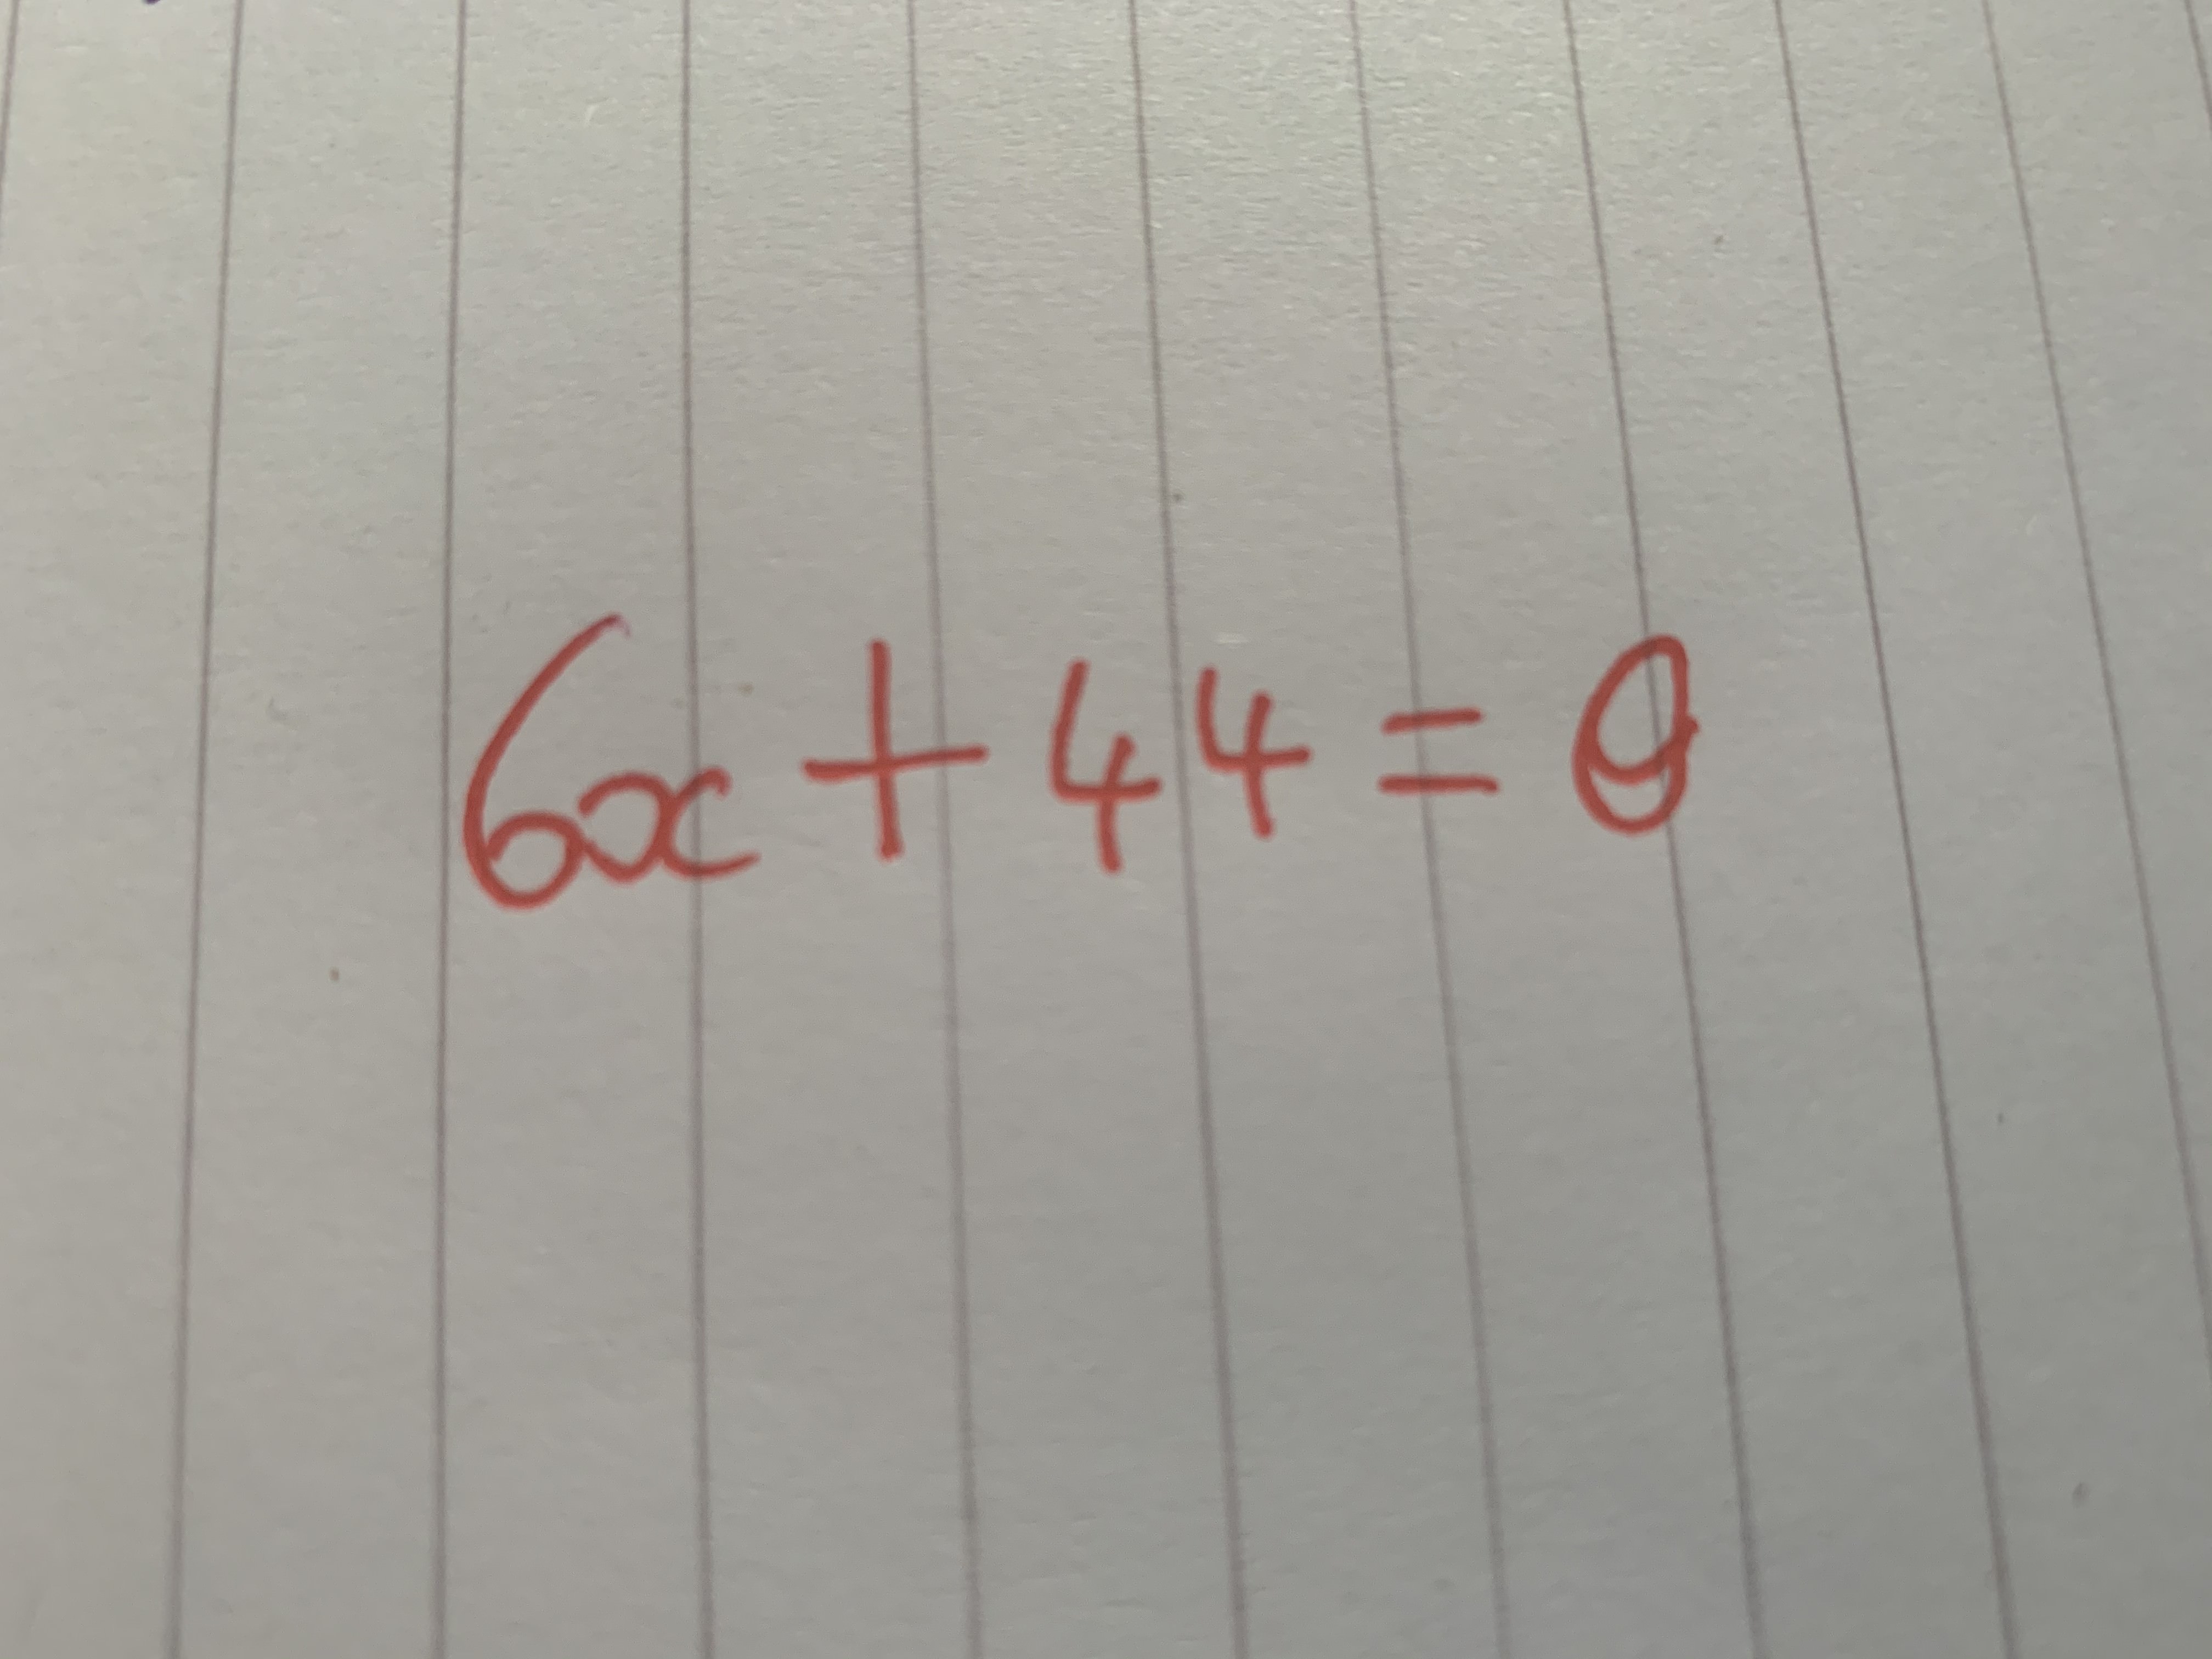 6x + 44 = 0